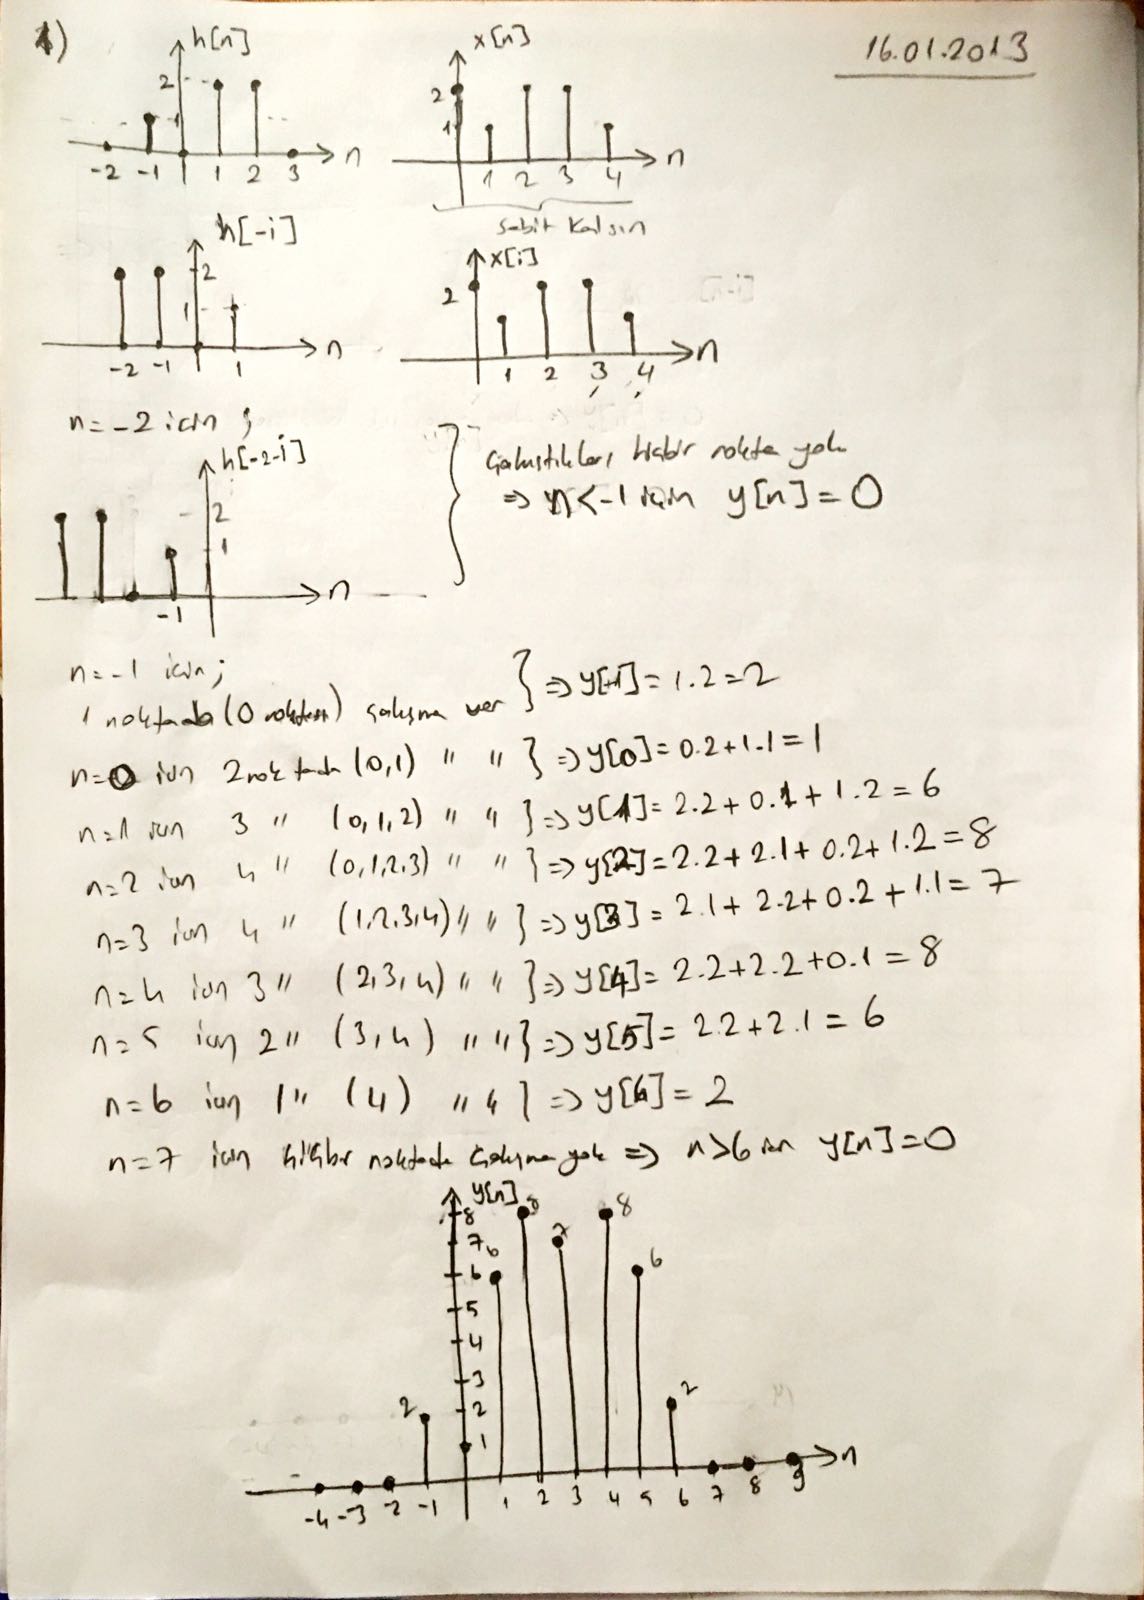 1)
16.01.2013
h[n]
2
1
-2 -1 1 2 3 n
x[n]
2
1
1 2 3 4 n
sabit kalsın
h[-i]
2
1
-2 -1 1 n
x[i]
2
1 2 3 4 n
n=-2 icin ;
h[-2-i]
2
1
-1 n
} Çakıştıkları hiçbir nokta yok
⇒ n<-1 için y[n]=0
n=-1 icin;
1 noktada (0 noktası) çakışma var } ⇒ y[-1]= 1.2=2
n=0 icin 2 noktada (0,1) " " } ⇒ y[0]= 0.2+1.1=1
n=1 icin 3 " (0,1,2) " " } ⇒ y[1]= 2.2+0.1+1.2=6
n=2 icin 4 " (0,1,2,3) " " } ⇒ y[2]=2.2+2.1+0.2+1.2=8
n=3 icin 4 " (1,2,3,4) " " } ⇒ y[3]= 2.1+2.2+0.2+1.1=7
n=4 icin 3 " (2,3,4) " " } ⇒ y[4]= 2.2+2.2+0.1=8
n=5 icin 2 " (3,4) " " } ⇒ y[5]= 2.2+2.1=6
n=6 icin 1 " (4) " " } ⇒ y[6]= 2
n=7 icin hiçbir noktada Çakışma yok ⇒ n>6 icin y[n]=0
y[n]
8 8 8
7 6 7
6 6
5
4
3
2 2 2
1
-4 -3 -2 -1 1 2 3 4 5 6 7 8 9 n